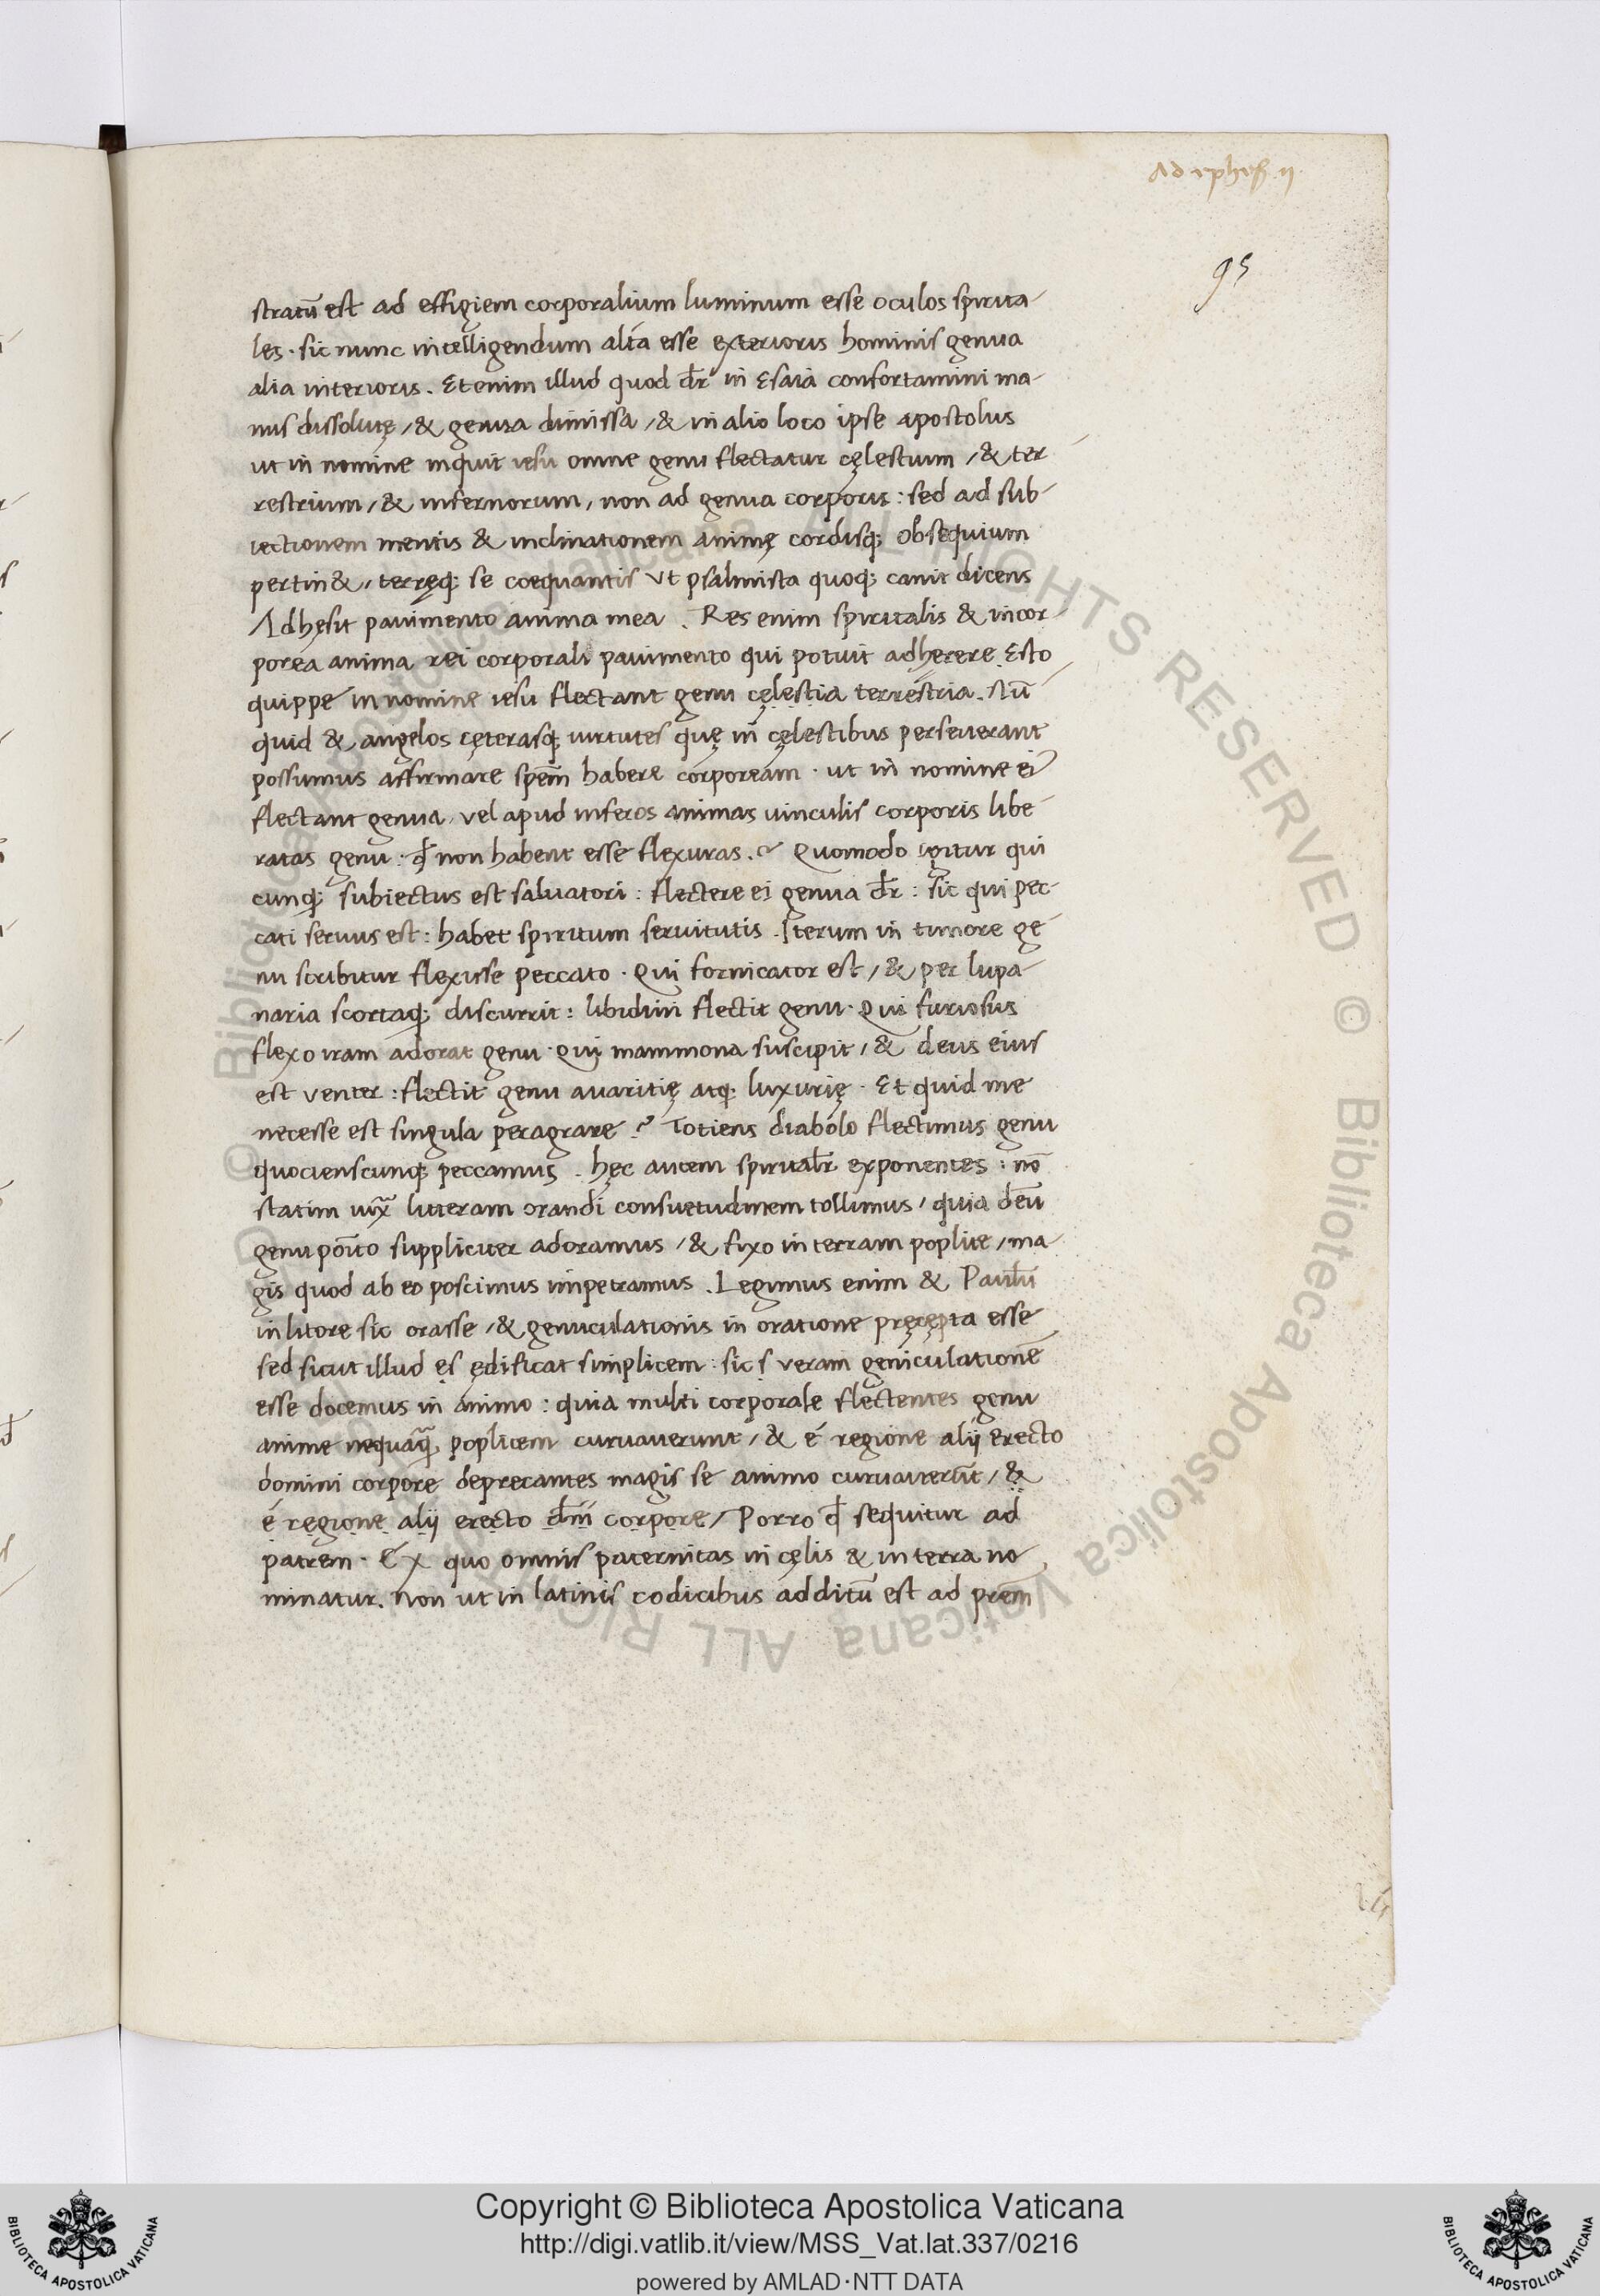 Ad ephes. ii
95
stratū est ad effigiem corporalium luminum esse oculos spirita-
les. sic nunc intelligendum alia esse exterioris hominis genua
alia interioris. Etenim illud quod dr̄ in Esaia confortamini ma-
nus dissolutę, & genua dimissa, & in alio loco ipse apostolus
ut in nomine inquit iesu omne genu flectatur cęlestium, & ter-
restrium, & infernorum, non ad genua corporis: sed ad sub-
iectionem mentis & inclinationem animę cordisq; obsequium
pertin&, terręq; se coequantis Vt psalmista quoq; canit dicens
Adhęsit pauimento anima mea. Res enim spiritalis & incor-
porea anima rei corporali pauimento qui potuit adherere. Esto
quippe in nomine iesu flectant genu cęlestia terrestria. Nū-
quid & angelos cęterasq; uirtutes quę in cęlestibus perseuerant
possumus affirmare spēm habere corpoream. ut in nomine ei᾽
flectant genua, vel apud inferos animas uinculis corporis libe-
ratas genu: qđ non habent esse flexuras.? Quomodo igitur qui
cunq; subiectus est saluatori: flectere ei genua dr̄: sic qui pec-
cati seruus est: habet spiritum seruitutis. Iterum in timore ge-
nu scribitur flexisse peccato. Qui fornicator est, & per lupa-
naria scortaq; discurrit: libidini flectit genu. Qui furiosus
flexo iram adorat genu. Qui mammona suscipit, & deus eius
est venter: flectit genu auaritię atq; luxurię. Et quid me
necesse est singula peragrare? Totiens diabolo flectimus genu
quocienscunq; peccamus. hęc autem spiritualr̄ exponentes: nō
statim iuxͣ litteram orandi consuetudinem tollimus, quia dēū
genu poīto suppliciter adoramus, & fixo in terram poplite, ma-
gis quod ab eo poscimus impetramus. Legimus enim & Paulū
in litore sic orasse, & genuculationis in oratione pręcepta esse
sed sicut illud es ędificat simplicem: sic s veram geniculationē
esse docemus in animo: quia multi corporale flectentes genu
anime nequaq̄ poplicem curuauerunt, & é regione alij erecto
domini corpore deprecantes magis se animo curuauerūt, &
é regione alij erecto dn̄i corpore, Porro qđ sequitur ad
patrem. Ex quo omnis paternitas in cęlis & in terra no-
minatur. Non ut in latinis codicibus additū est ad prēm
© Biblioteca Apostolica Vaticana ALL RIGHTS RESERVED
Copyright © Biblioteca Apostolica Vaticana
http://digi.vatlib.it/view/MSS_Vat.lat.337/0216
powered by AMLAD·NTT DATA
BIBLIOTECA APOSTOLICA VATICANA
BIBLIOTECA APOSTOLICA VATICANA